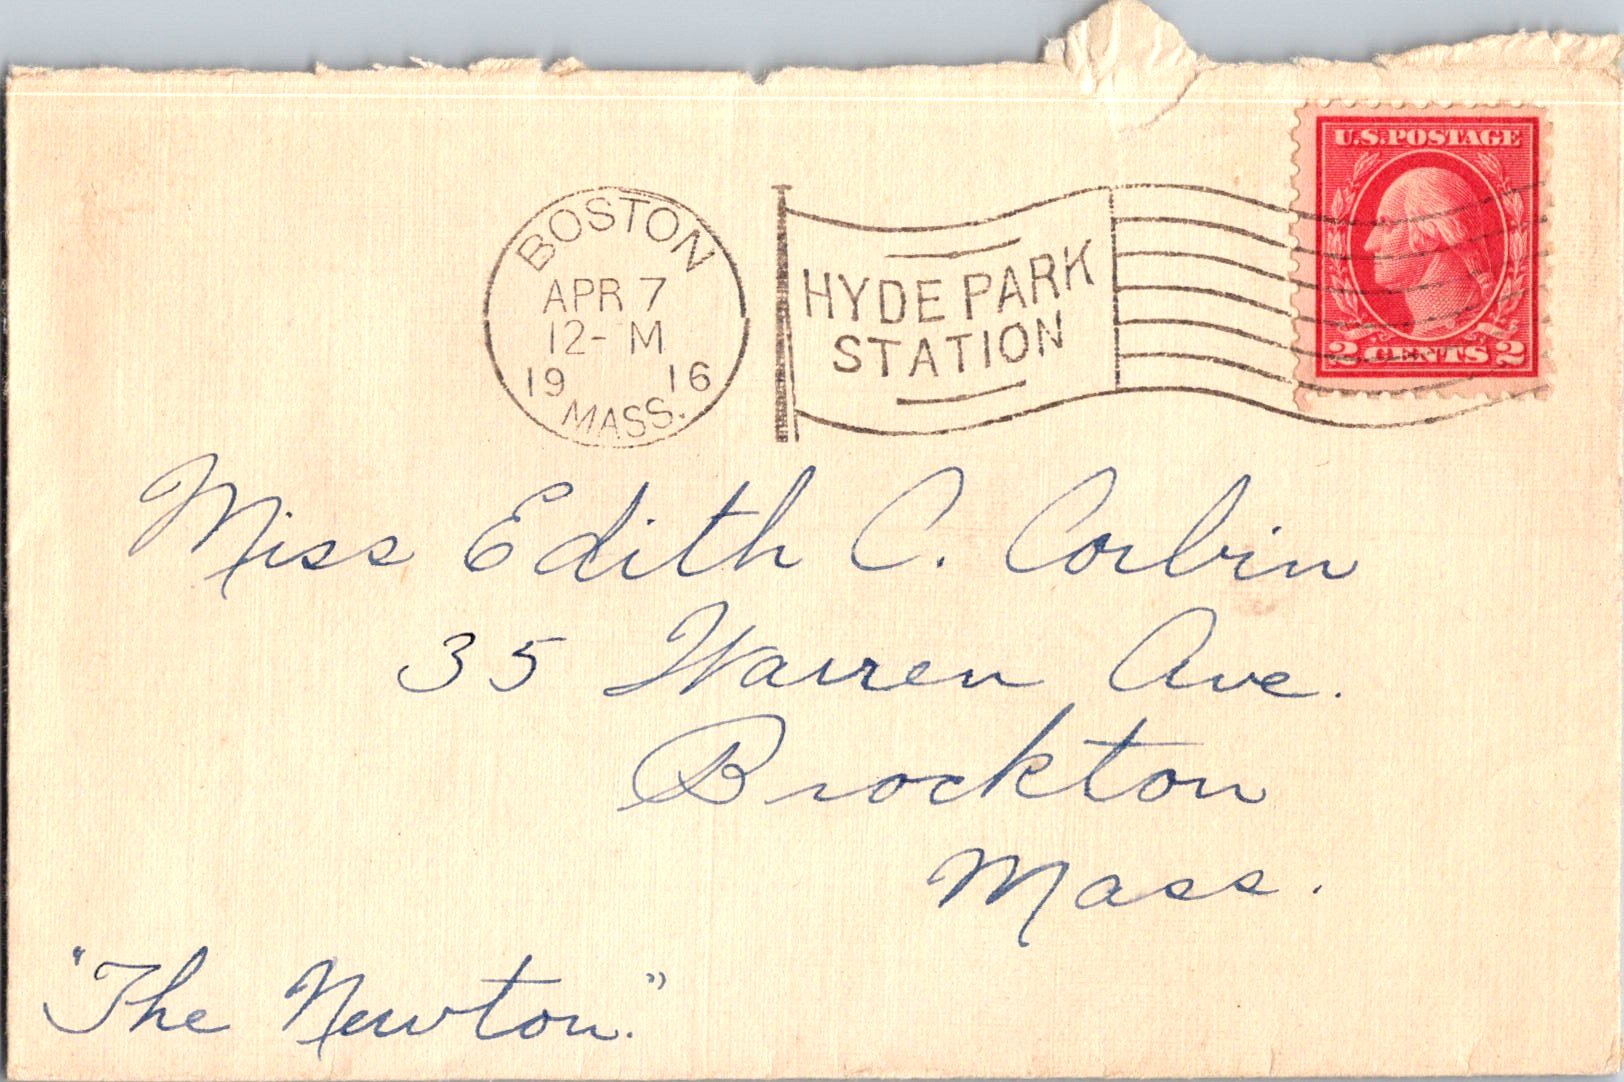 U.S. POSTAGE
2 CENTS 2
BOSTON
APR 7
12- M
19 16
MASS.
HYDE PARK
STATION
Miss Edith C. Corbin
35 Warren Ave.
Brockton
Mass.
"The Newton."